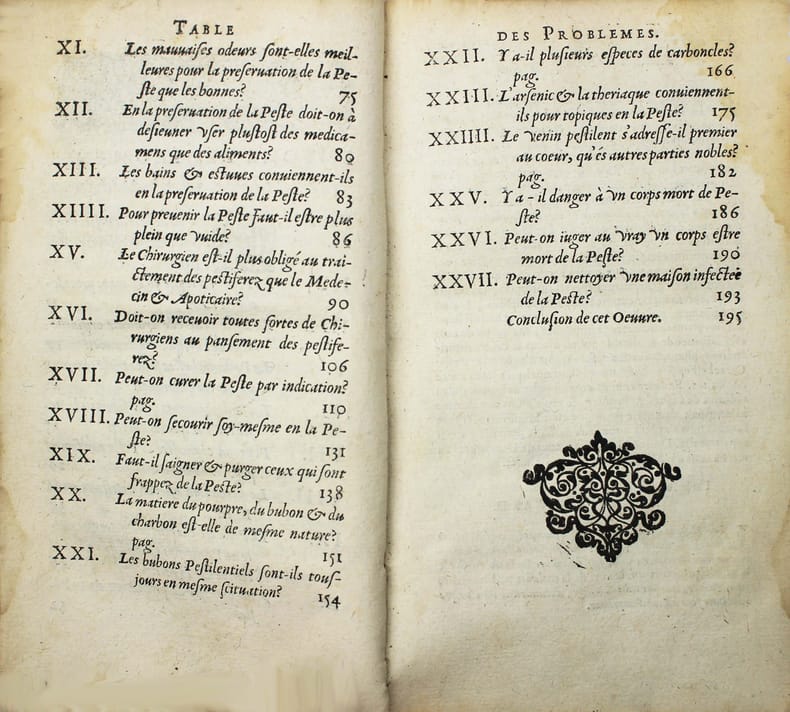 TABLE
XI. Les mauuaises odeurs sont-elles meil-
leures pour la preseruation de la Pe-
ste que les bonnes? 75
XII. En la preseruation de la Peste doit-on à
desieuner vser plustost des medica-
mens que des aliments? 80
XIII. Les bains & estuues conuiennent-ils
en la preseruation de la Peste? 83
XIIII. Pour preuenir la Peste faut-il estre plus
plein que vuide? 86
XV. Le Chirurgien est-il plus obligé au trai-
ctement des pestiferez que le Mede-
cin & Apoticaire? 90
XVI. Doit-on receuoir toutes sortes de Chi-
rurgiens au pansement des pestife-
rez? 106
XVII. Peut-on curer la Peste par indication?
pag. 110
XVIII. Peut-on secourir soy-mesme en la Pe-
ste? 131
XIX. Faut-il saigner & purger ceux qui sont
frappez de la Peste? 138
XX. La matiere du pourpre, du bubon & du
charbon est-elle de mesme nature?
pag. 151
XXI. Les bubons Pestilentiels sont-ils tous-
jours en mesme scituation? 154
DES PROBLEMES.
XXII. Y a-il plusieurs especes de carboncles?
pag. 166
XXIII. L'arsenic & la theriaque conuiennent-
ils pour topiques en la Peste? 175
XXIIII. Le venin pestilent s'adresse-il premier
au coeur, qu'és autres parties nobles?
pag. 182
XXV. Y a-il danger à vn corps mort de Pe-
ste? 186
XXVI. Peut-on iuger au vray vn corps estre
mort de la Peste? 190
XXVII. Peut-on nettoyer vne maison infectee
de la Peste? 193
Conclusion de cet Oeuure. 195